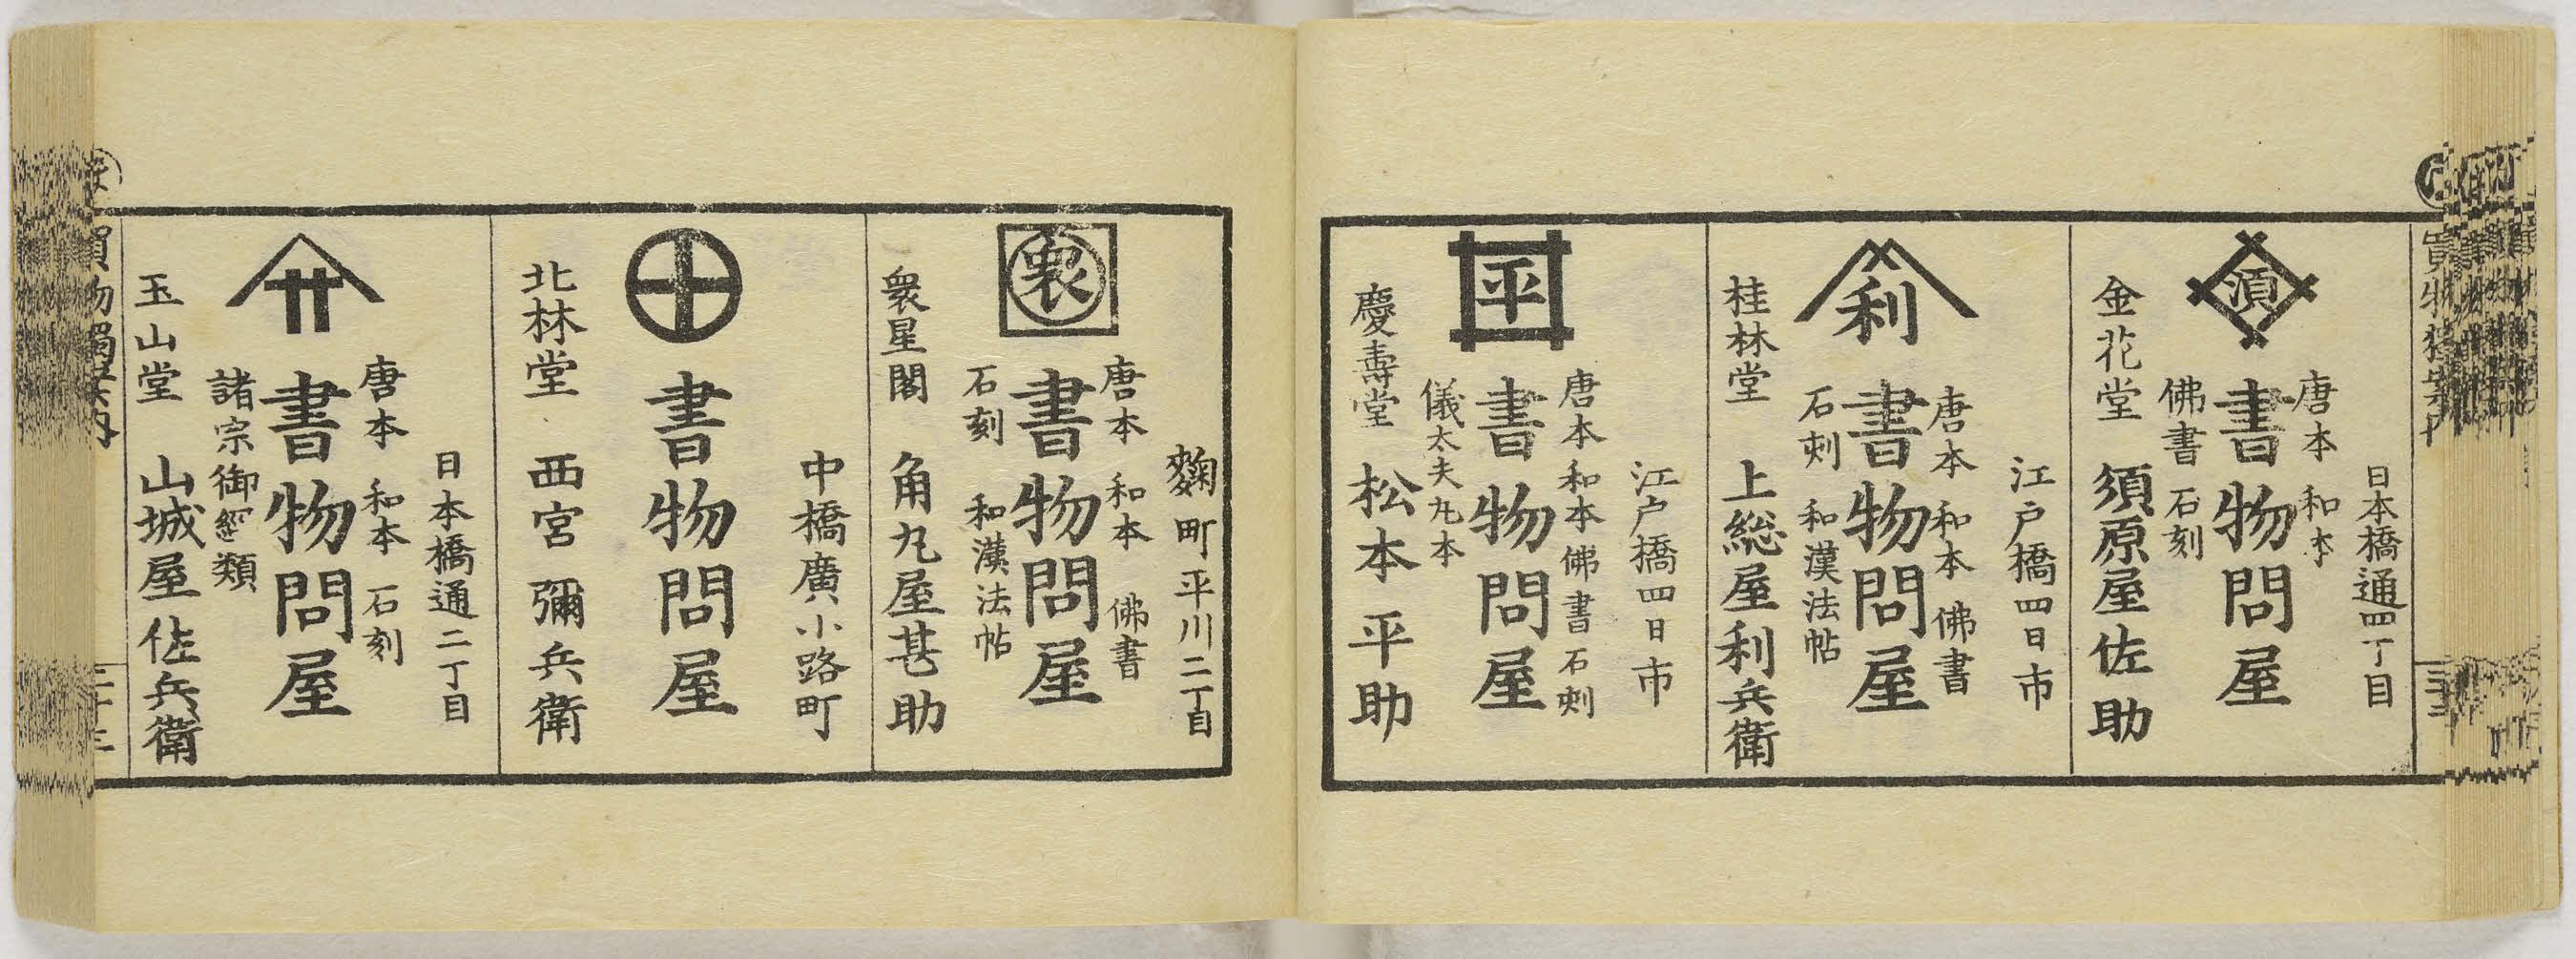 須
日本橋通四丁目
唐本 和本
書物問屋
佛書 石刻
金花堂 須原屋佐助
利
江戸橋四日市
唐本 和本 佛書
書物問屋
石刻 和漢法帖
桂林堂 上総屋利兵衛
平
江戸橋四日市
唐本 和本 佛書 石刻
書物問屋
儀太夫丸本
慶壽堂 松本平助
衆
麹町平川二丁目
唐本 和本 佛書
書物問屋
石刻 和漢法帖
衆星閣 角丸屋甚助
中橋廣小路町
書物問屋
北林堂 西宮彌兵衛
日本橋通二丁目
唐本 和本 石刻
書物問屋
諸宗御經類
玉山堂 山城屋佐兵衛